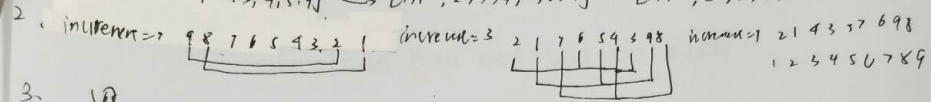 2. increment=7 9 8 7 6 5 4 3 2 1 increment=3 2 1 7 6 5 4 3 9 8 increment=1 2 1 4 3 5 7 6 9 8
1 2 3 4 5 6 7 8 9
3.